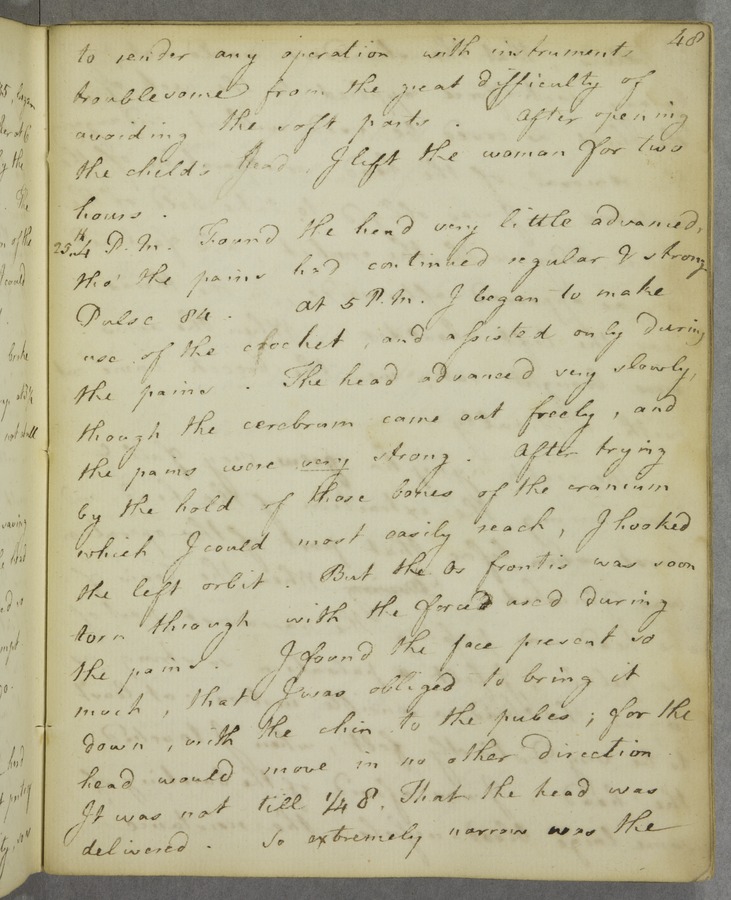 48
to render any operation with instruments
troublesome from the great difficulty of
avoiding the soft parts. After opening
the child's head, I left the woman for two
hours.
25th 4 P.M. Found the head very little advanced,
tho' the pains had continued regular & strong
Pulse 84. At 5 P.M. I began to make
use of the crochet, and assisted only during
the pains. The head advanced very slowly,
though the cerebrum came out freely, and
the pains were very strong. After trying
by the hold of those bones of the cranium
which I could most easily reach, I hooked
the left orbit. But the Os frontis was soon
torn through with the force used during
the pains. I found the face present so
much, that I was obliged to bring it
down, with the chin to the pubes; for the
head would move in no other direction
It was not till 1/4 8. That the head was
delivered. So extremely narrow was the